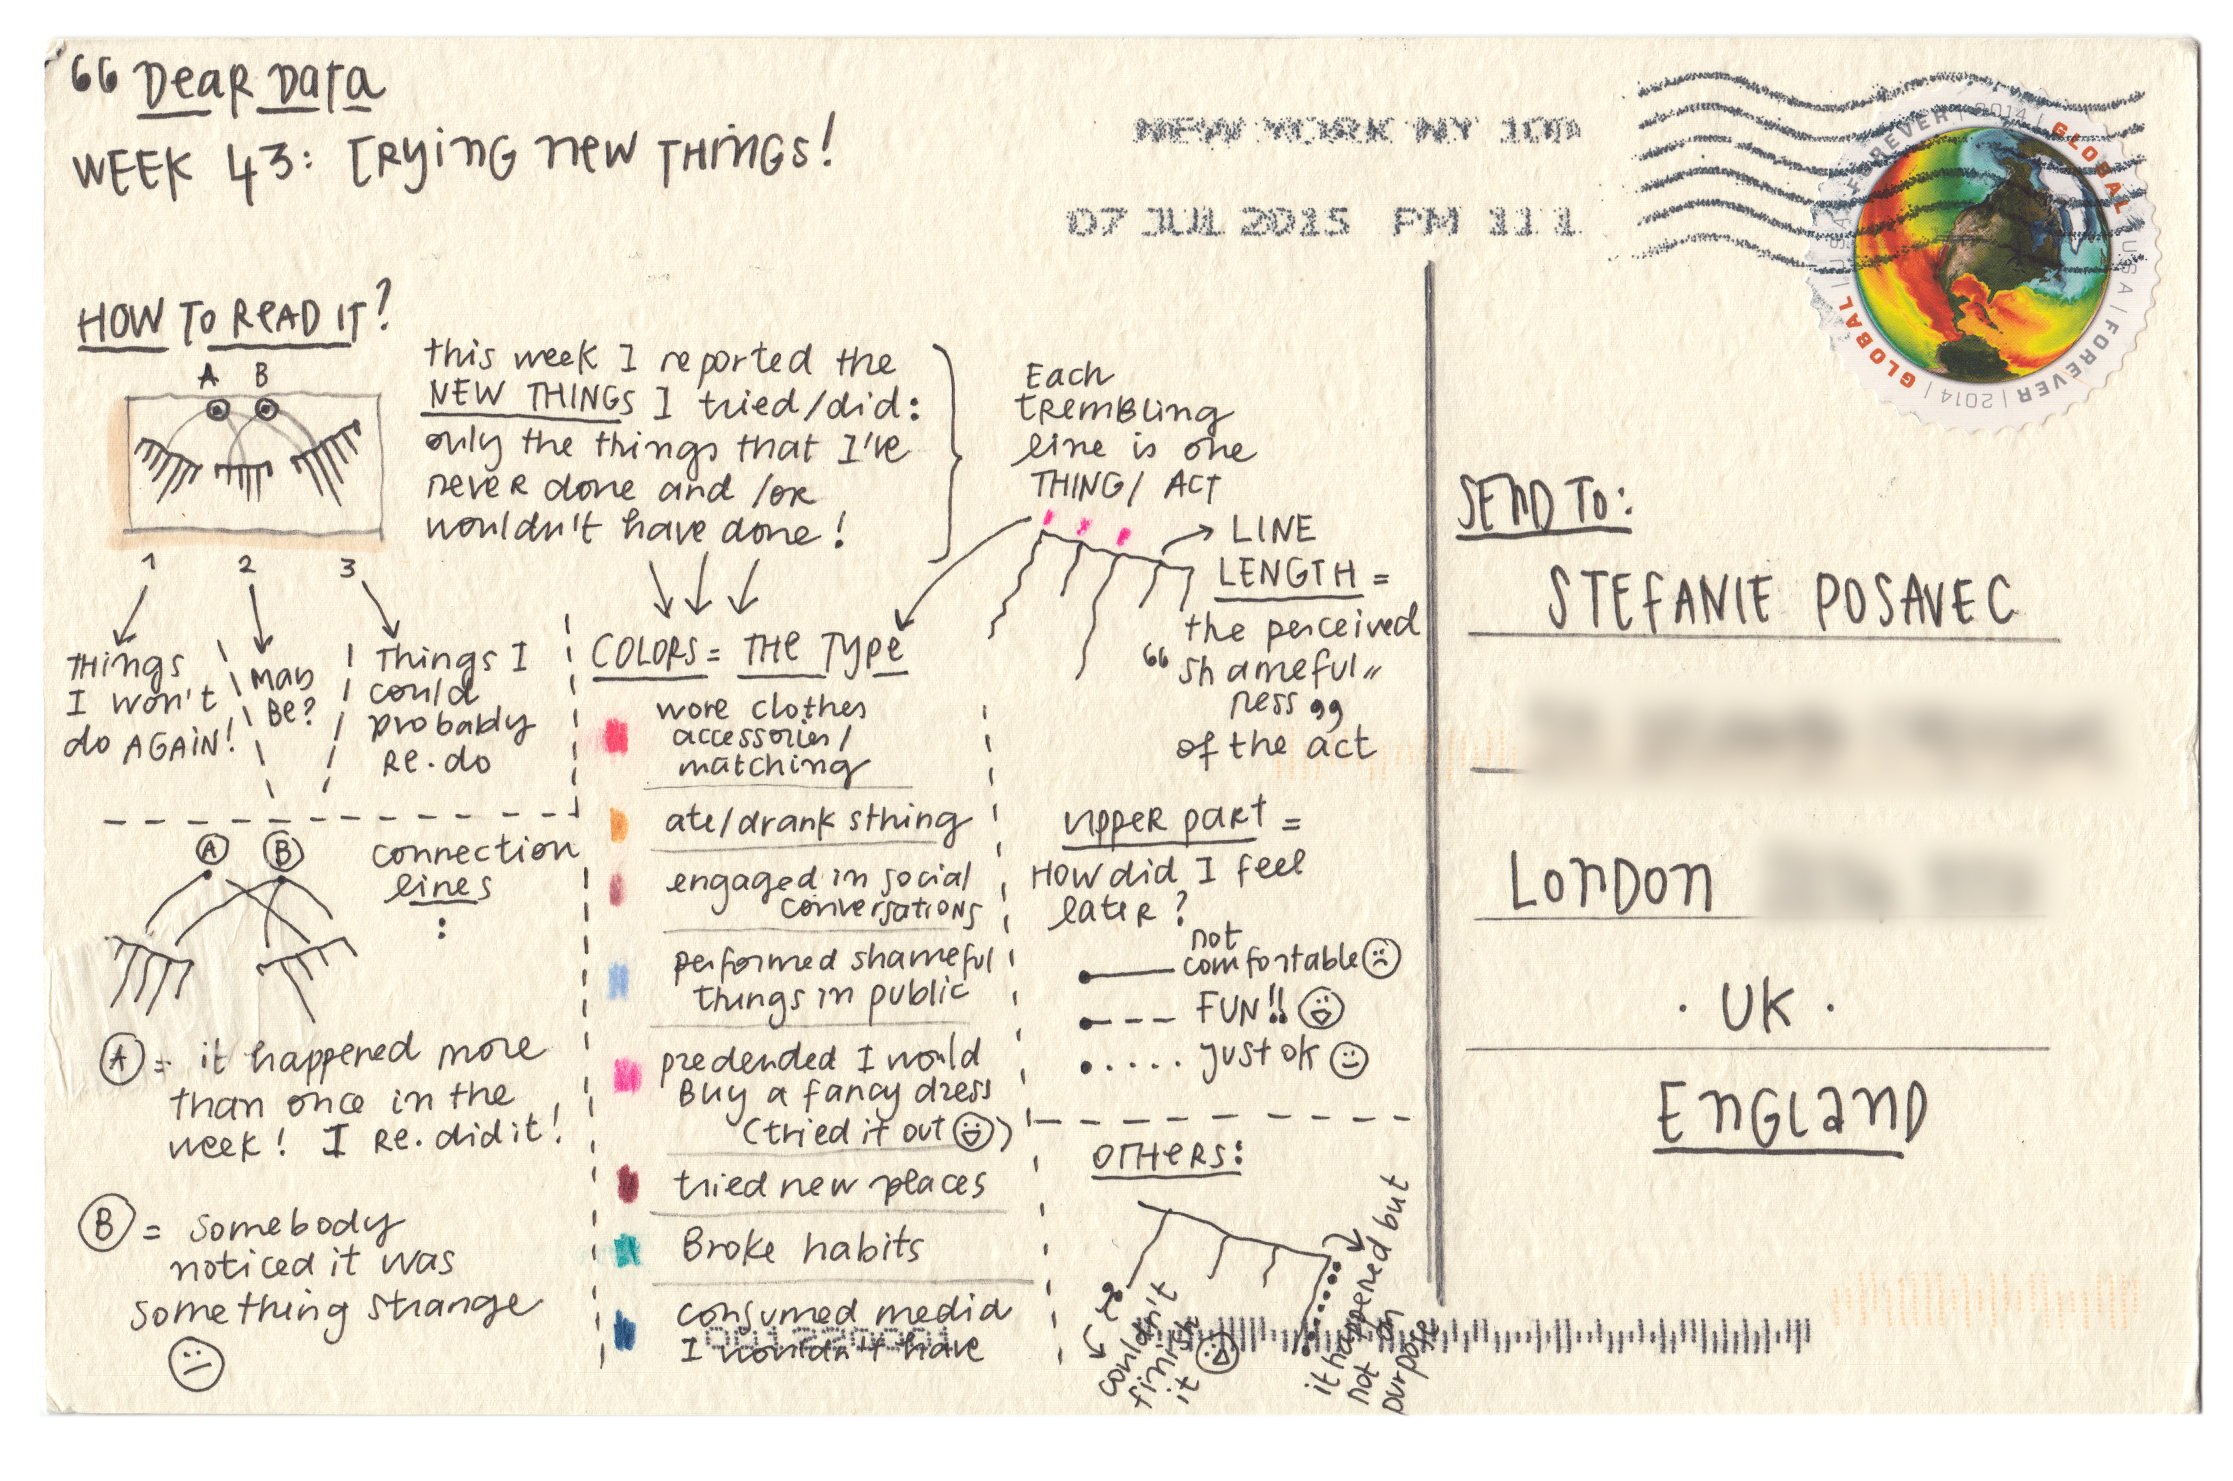 “ Dear Data
WEEK 43: TRYING NEW THINGS!
NEW YORK NY 100
07 JUL 2015 PM 11 1
GLOBAL | USA | FOREVER | 2014 | GLOBAL | USA | FOREVER | 2014 |
HOW TO READ IT?
A B
1 2 3
THINGS
I won't
do AGAIN!
MAY
BE?
Things I
could
probably
RE.do
this week I reported the
NEW THINGS I tried/did:
only the things that I've
never done and /or
wouldn't have done!
Each
TREMBLING
line is one
THING/ ACT
LINE
LENGTH =
the perceived
“ shameful〃
ness ”
of the act
COLORS = THE TYPE
wore clothes
accessories/
matching
ate/drank sthing
engaged in social
conversations
performed shameful
things in public
predended I would
BUY a fancy dress
(tried it out)
tried new places
Broke habits
consumed media
I wouldn't have
A B
connection
lines
:
A = it happened more
than once in the
week! I RE.did it!
B = somebody
noticed it was
something strange
UPPER PART =
HOW did I feel
later?
not
comfortable
FUN!!
just ok
OTHERS:
couldn't
finish
it
it happened but
not on
purpose
SEND TO:
STEFANIE POSAVEC
LONDON
· UK ·
ENGLAND